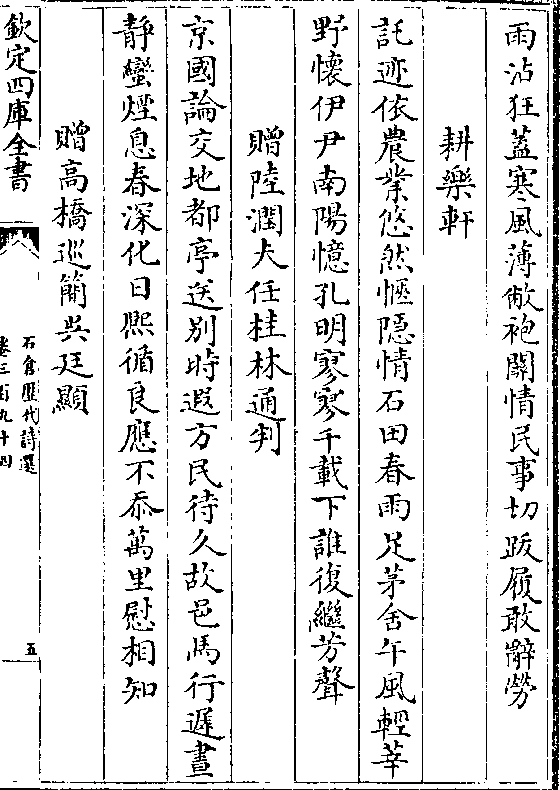 雨沾狂蓋寒風薄敝袍關情民事切跋履敢辭勞
耕樂軒
託迹依農業悠然愜隱情石田春雨足茅舍午風輕莘
野懷伊尹南陽憶孔明寥寥千載下誰復繼芳聲
贈陸潤夫任桂林通判
京國論交地都亭送别時遐方民待久故邑馬行遲晝
静蠻煙息春深化日熙循良應不忝萬里慰相知
贈高橋巡簡吳廷顯
欽定四庫全書
石倉歷代詩選
卷三百九十四
五